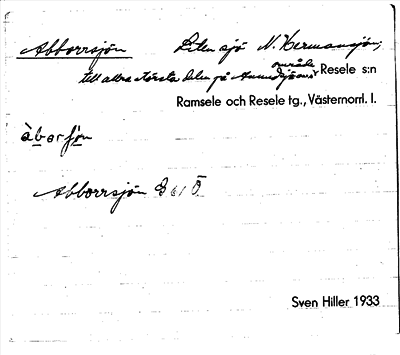 Abborrsjön Liten sjö N. Hermansjön,
till allra största delen på Anundsjöns område, Resele s:n
Ramsele och Resele tg., Västernorrl. l.
Abborrsjön 361 Ö.
Sven Hiller 1933